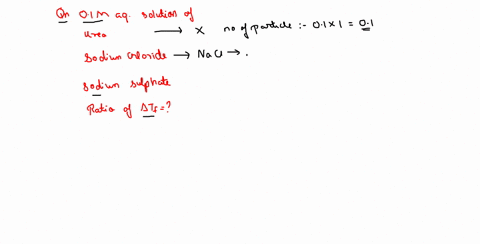 Qn 0.1M aq. solution of
urea → X no of particle :- 0.1 x 1 = 0.1
Sodium chloride → NaCl → .
Sodium sulphate
Ratio of ΔTf = ?